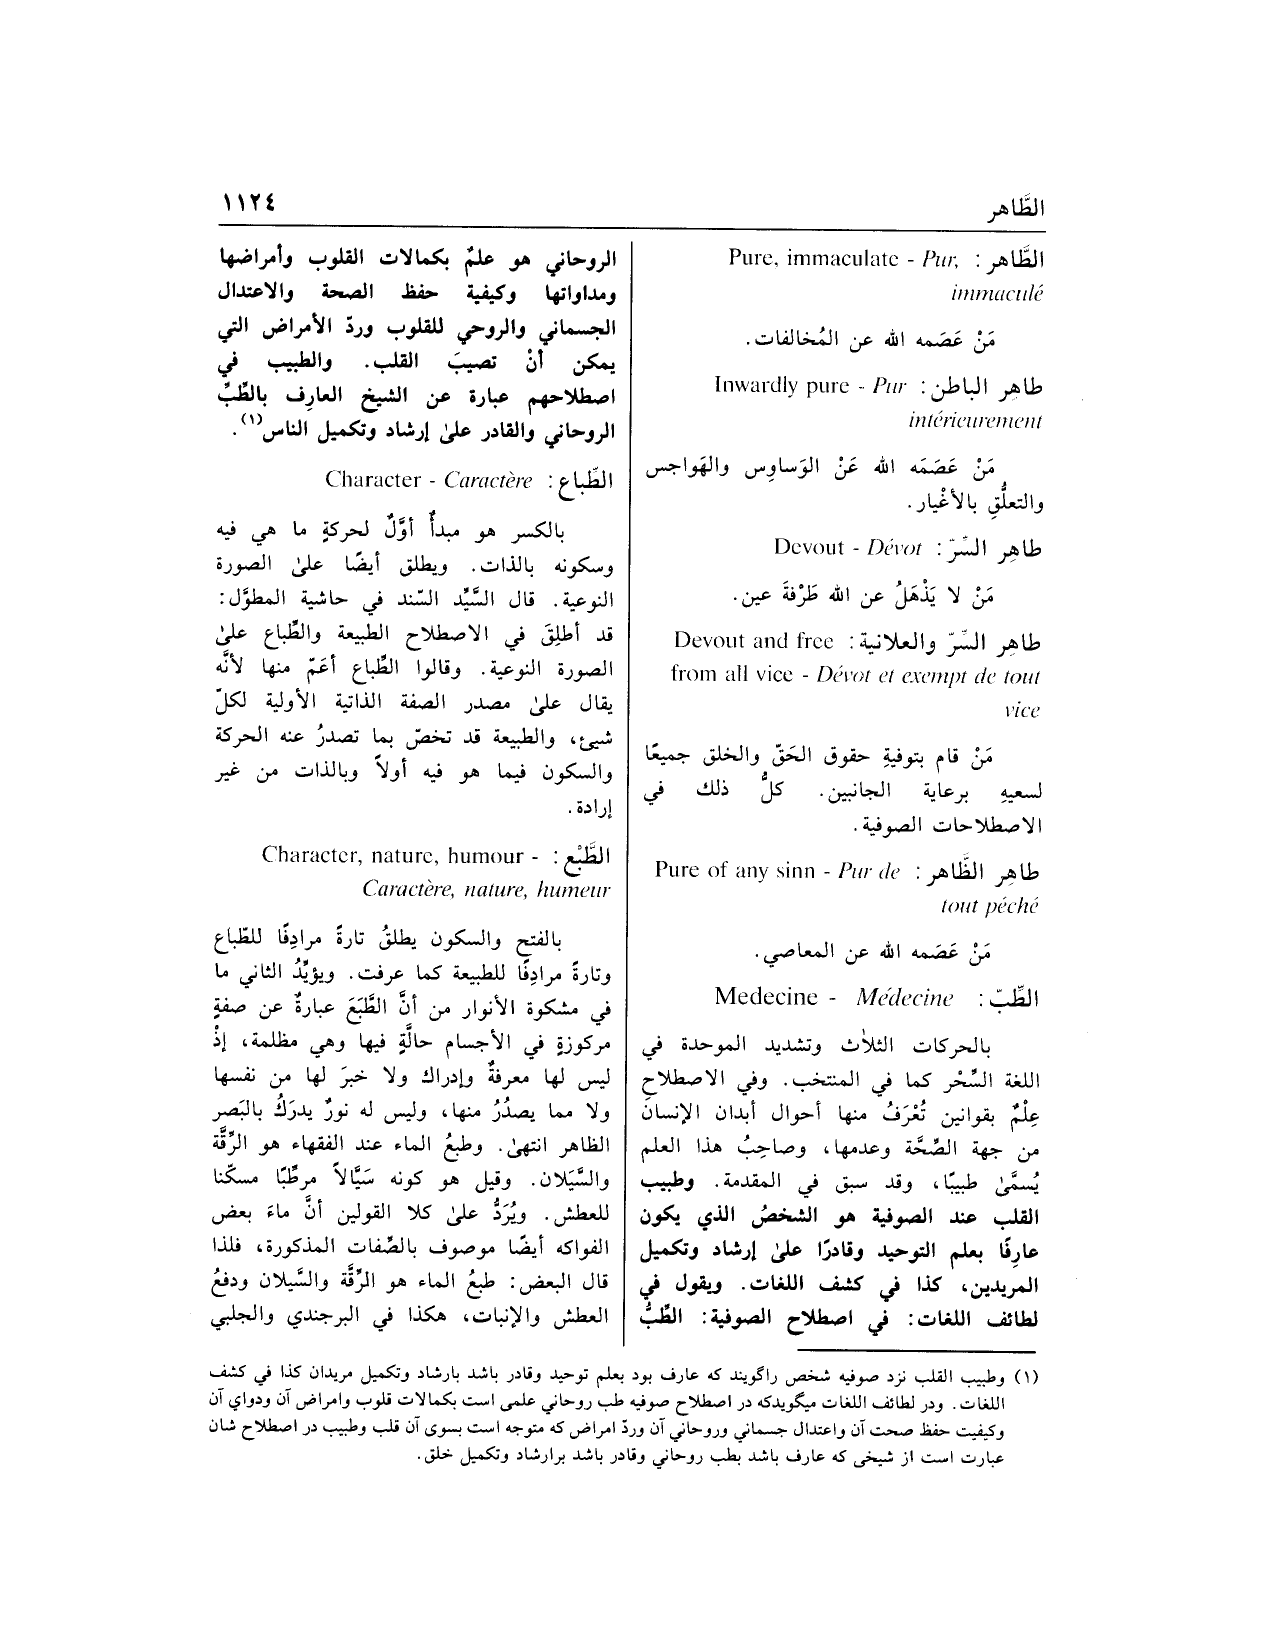 الظَّاهر
١١٢٤
الظَّاهر : Pure, immaculate - Pur,
immaculé
مَنْ عَصَمه الله عن المُخالفات.
طاهِر الباطن : Inwardly pure - Pur
intérieurement
مَنْ عَصَمَه الله عَنْ الوَساوِس والهَواجس
والتعلُّقِ بالأغْيار.
طاهِر السِّرّ : Devout - Dévot
مَنْ لا يَذْهَلُ عن الله طَرْفةَ عين.
طاهِر السِّرّ والعلانية : Devout and free
from all vice - Dévot et exempt de tout
vice
مَنْ قام بتوفيةِ حقوق الحَقّ والخلق جميعًا
لسعيهِ برعاية الجانبين. كلُّ ذلك في
الاصطلاحات الصوفية.
طاهِر الظَّاهر : Pure of any sinn - Pur de
tout péché
مَنْ عَصَمه الله عن المعاصي.
الطِّبّ : Medecine - Médecine
بالحركات الثلاث وتشديد الموحدة في
اللغة السِّحْر كما في المنتخب. وفي الاصطلاحِ
عِلْمٌ بقوانين تُعْرَفُ منها أحوال أبدان الإنسان
من جهة الصِّحَّة وعدمها، وصاحِبُ هذا العلم
يُسمَّىٰ طبيبًا، وقد سبق في المقدمة. وطبيب
القلب عند الصوفية هو الشخصُ الذي يكون
عارِفًا بعلم التوحيد وقادرًا علىٰ إرشاد وتكميل
المريدين، كذا في كشف اللغات. ويقول في
لطائف اللغات: في اصطلاح الصوفية: الطِّبُّ
الروحاني هو علمٌ بكمالات القلوب وأمراضها
ومداواتها وكيفية حفظ الصحة والاعتدال
الجسماني والروحي للقلوب وردّ الأمراض التي
يمكن أنْ تصيبَ القلب. والطبيب في
اصطلاحهم عبارة عن الشيخ العارِف بالطِّبِّ
الروحاني والقادر علىٰ إرشاد وتكميل الناس(١).
الطِّباع : Character - Caractère
بالكسر هو مبدأٌ أوَّلٌ لحركةِ ما هي فيه
وسكونه بالذات. ويطلق أيضًا علىٰ الصورة
النوعية. قال السَّيِّد السّند في حاشية المطوَّل:
قد أطلِقَ في الاصطلاح الطبيعة والطِّباع علىٰ
الصورة النوعية. وقالوا الطِّباع أعَمّ منها لأنَّه
يقال علىٰ مصدر الصفة الذاتية الأولية لكلّ
شيئ، والطبيعة قد تخصّ بما تصدرُ عنه الحركة
والسكون فيما هو فيه أولاً وبالذات من غير
إرادة.
الطَّبْع : Character, nature, humour -
Caractère, nature, humeur
بالفتح والسكون يطلقُ تارةً مرادِفًا للطّباع
وتارةً مرادِفًا للطبيعة كما عرفت. ويؤيِّدُ الثاني ما
في مشكوة الأنوار من أنَّ الطَّبَعَ عبارةٌ عن صفةٍ
مركوزةٍ في الأجسام حالَّةٍ فيها وهي مظلمة، إذْ
ليس لها معرفةٌ وإدراك ولا خبرَ لها من نفسها
ولا مما يصدُرُ منها، وليس له نورٌ يدرَكُ بالبَصر
الظاهر انتهىٰ. وطبعُ الماء عند الفقهاء هو الرِّقَّة
والسَّيَلان. وقيل هو كونه سَيَّالاً مرطِّبًا مسكّنا
للعطش. ويُرَدُّ علىٰ كلا القولين أنَّ ماءَ بعض
الفواكه أيضًا موصوف بالصِّفات المذكورة، فلذا
قال البعض: طبعُ الماء هو الرِّقَّة والسَّيلان ودفعُ
العطش والإنبات، هكذا في البرجندي والجلبي
(١) وطبيب القلب نزد صوفيه شخص راگويند كه عارف بود بعلم توحيد وقادر باشد بارشاد وتكميل مريدان كذا في كشف
اللغات. ودر لطائف اللغات ميگويدكه در اصطلاح صوفيه طب روحاني علمى است بكمالات قلوب وامراض آن ودواي آن
وكيفيت حفظ صحت آن واعتدال جسماني وروحاني آن وردّ امراض كه متوجه است بسوى آن قلب وطبيب در اصطلاح شان
عبارت است از شيخى كه عارف باشد بطب روحاني وقادر باشد برارشاد وتكميل خلق.